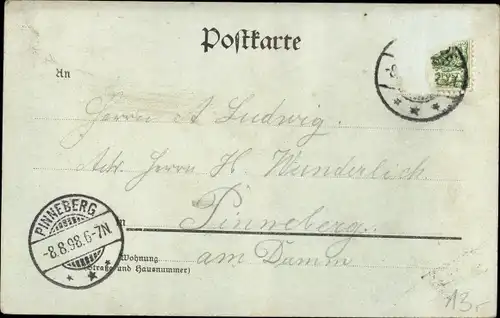 Postkarte
An
Herrn A Ludwig.
Adr. Herrn H. Wunderlich.
in
Pinneberg.
Wohnung
(Straße und Hausnummer)
am Damm
PINNEBERG
-8.8.98.6-7N.
13.-